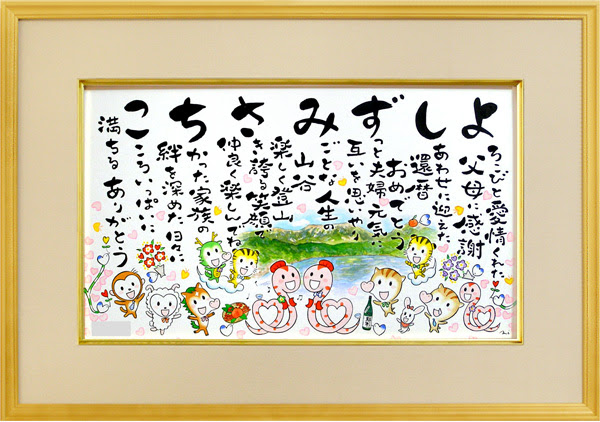 よろこびと愛情くれた
父母に感謝
しあわせに迎えた
還暦
おめでとう
ずっと夫婦元気に
互いを思いやり
みごとな人生の
山谷
楽しく登山
さき誇る笑顔で
仲良く楽しんでね
ちかった家族の
絆を深めた日々に
こころいっぱいに
満ちる ありがとう